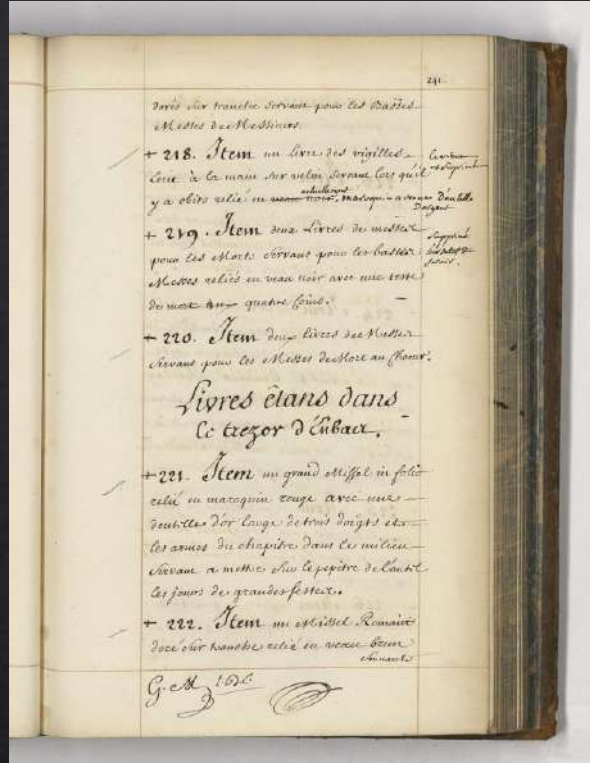 241
dorés sur tranche servant pour les Basses
Messes de Messieurs
+ 218. Item un livre des vigilles
à la main sur velin servant lors qu'il
actuellement
y a obits relié en veau noir, maroquin
+ 219. Item deux Livres de messes
pour les Morts servant pour les basses
Messes reliés en veau noir avec une teste
de mort aux quatre coins.
+ 220. Item deux livres de Messes
servans pour les Messes de Mort au Choeur.
Livres êtans dans
le trezor d'Enbaut.
+ 221. Item un grand Missel in folio
relié en maroquin rouge avec une
dentelle d'or large de trois doigts et
les armes du chapitre dans le milieu
servant a mettre sur le pupitre de l'autel
les jours de grandes festes.
+ 222. Item un Missel Romain
doré sur tranche relié en veau brun
G. M